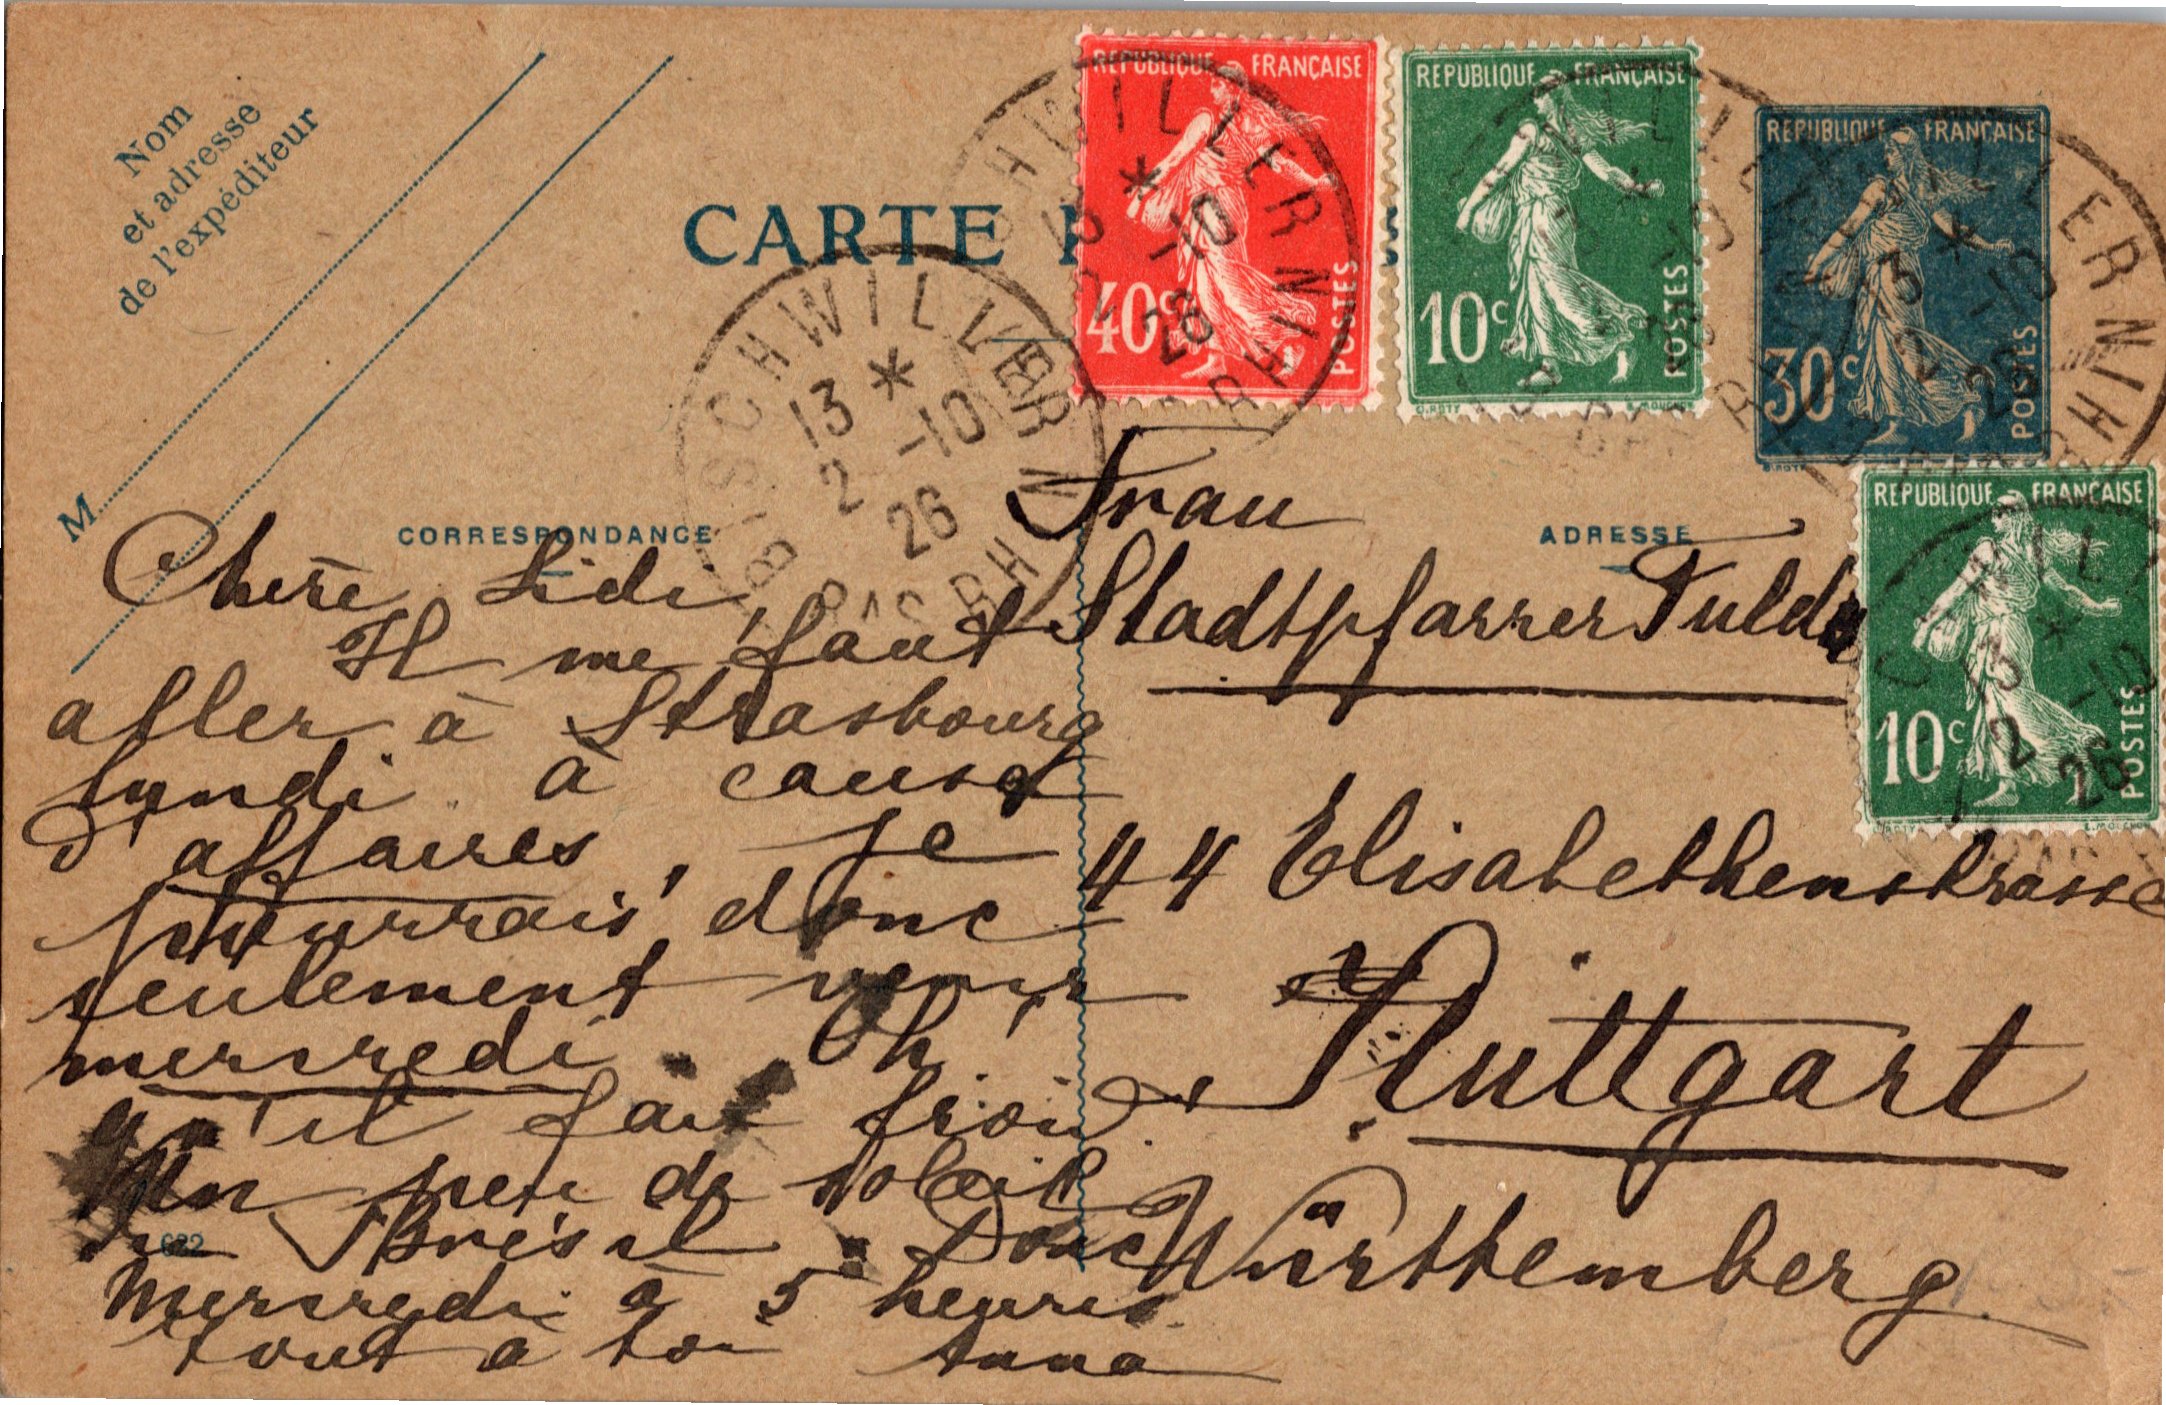 Nom
et adresse
de l'expéditeur
M
CARTE P
REPUBLIQUE FRANÇAISE
40c
POSTES
REPUBLIQUE FRANÇAISE
10c
POSTES
REPUBLIQUE FRANÇAISE
30c
POSTES
REPUBLIQUE FRANÇAISE
10c
POSTES
BISCHWILLER
13 * -10
2 26
BAS RHIN
CORRESPONDANCE
ADRESSE
Chère Lidi,
Il me faut
aller à Strasbourg
lundi à cause
d'affaires, je
pourrais donc
seulement venir
mercredi. Oh,
qu'il fait froid.
Un peu de soleil
du Brésil. Donc
Mercredi à 5 heures.
tout à toi Anna
Frau
Stadtpfarrer Fulda
44 Elisabethenstrasse
Stuttgart
Württemberg
622